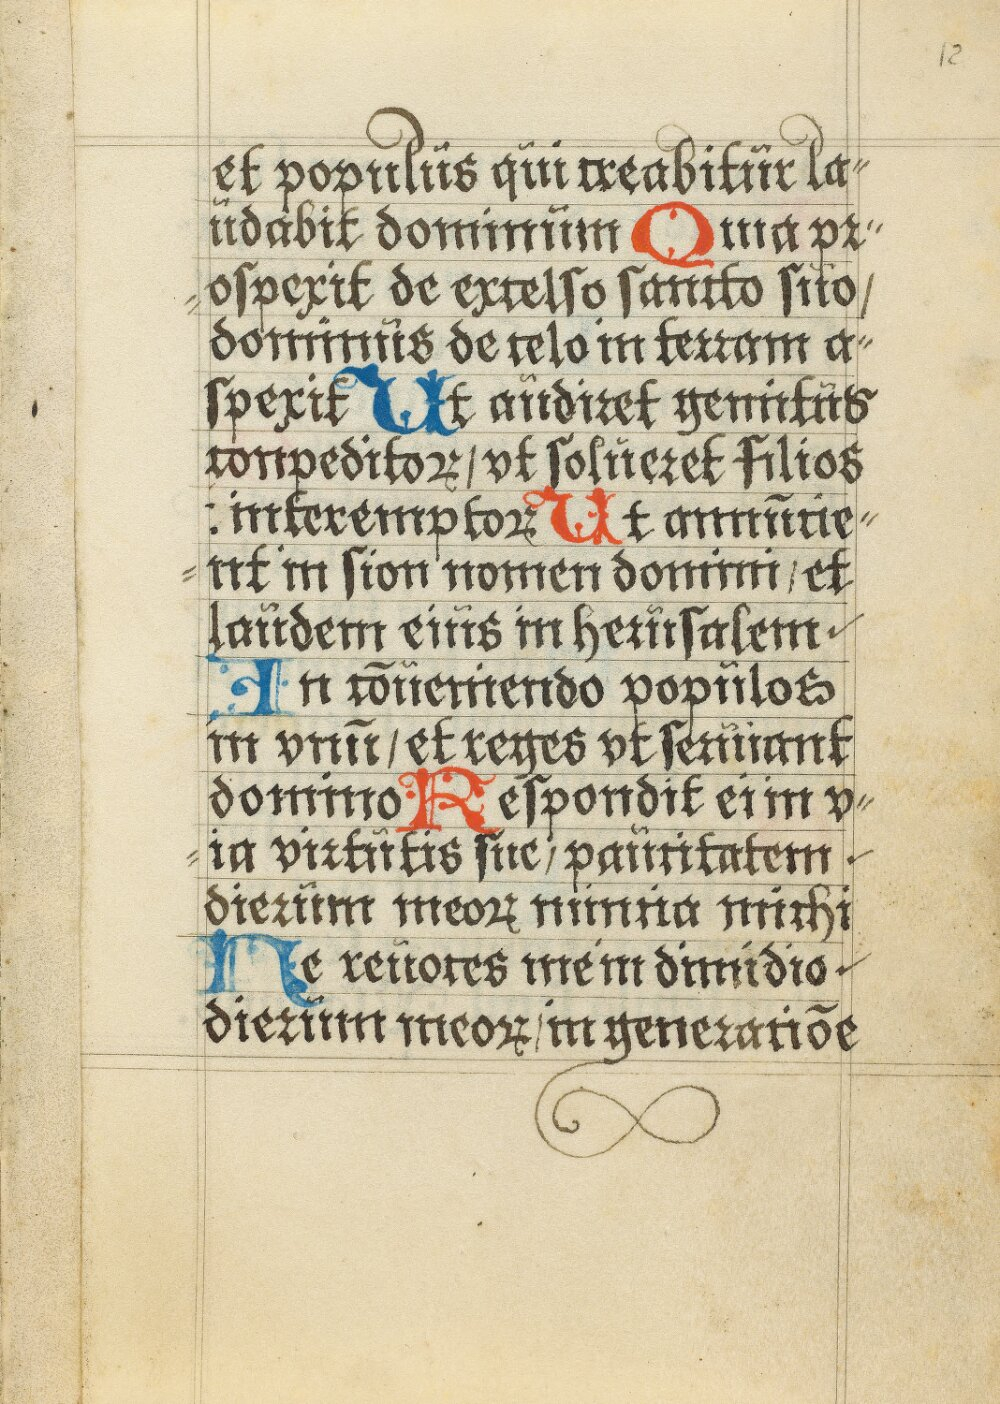 12
et populus qui creabitur la=
udabit dominum Quia pr=
=ospexit de excelso sancto suo/
dominus de celo in terram a=
spexit Ut audiret gemitus
conpeditoꝝ/ vt solueret filios
: interemptoꝝ Ut annūcie=
=nt in sion nomen domini/ et
laudem eius in herusalem
In cōueniendo populos
in vnū/ et reges vt seruiant
domino Respondit ei in v=
=ia virtutis sue/ paucitatem
dierum meoꝝ nuncia michi
Ne reuoces me in dimidio
dierum meoꝝ/ in generatiōe